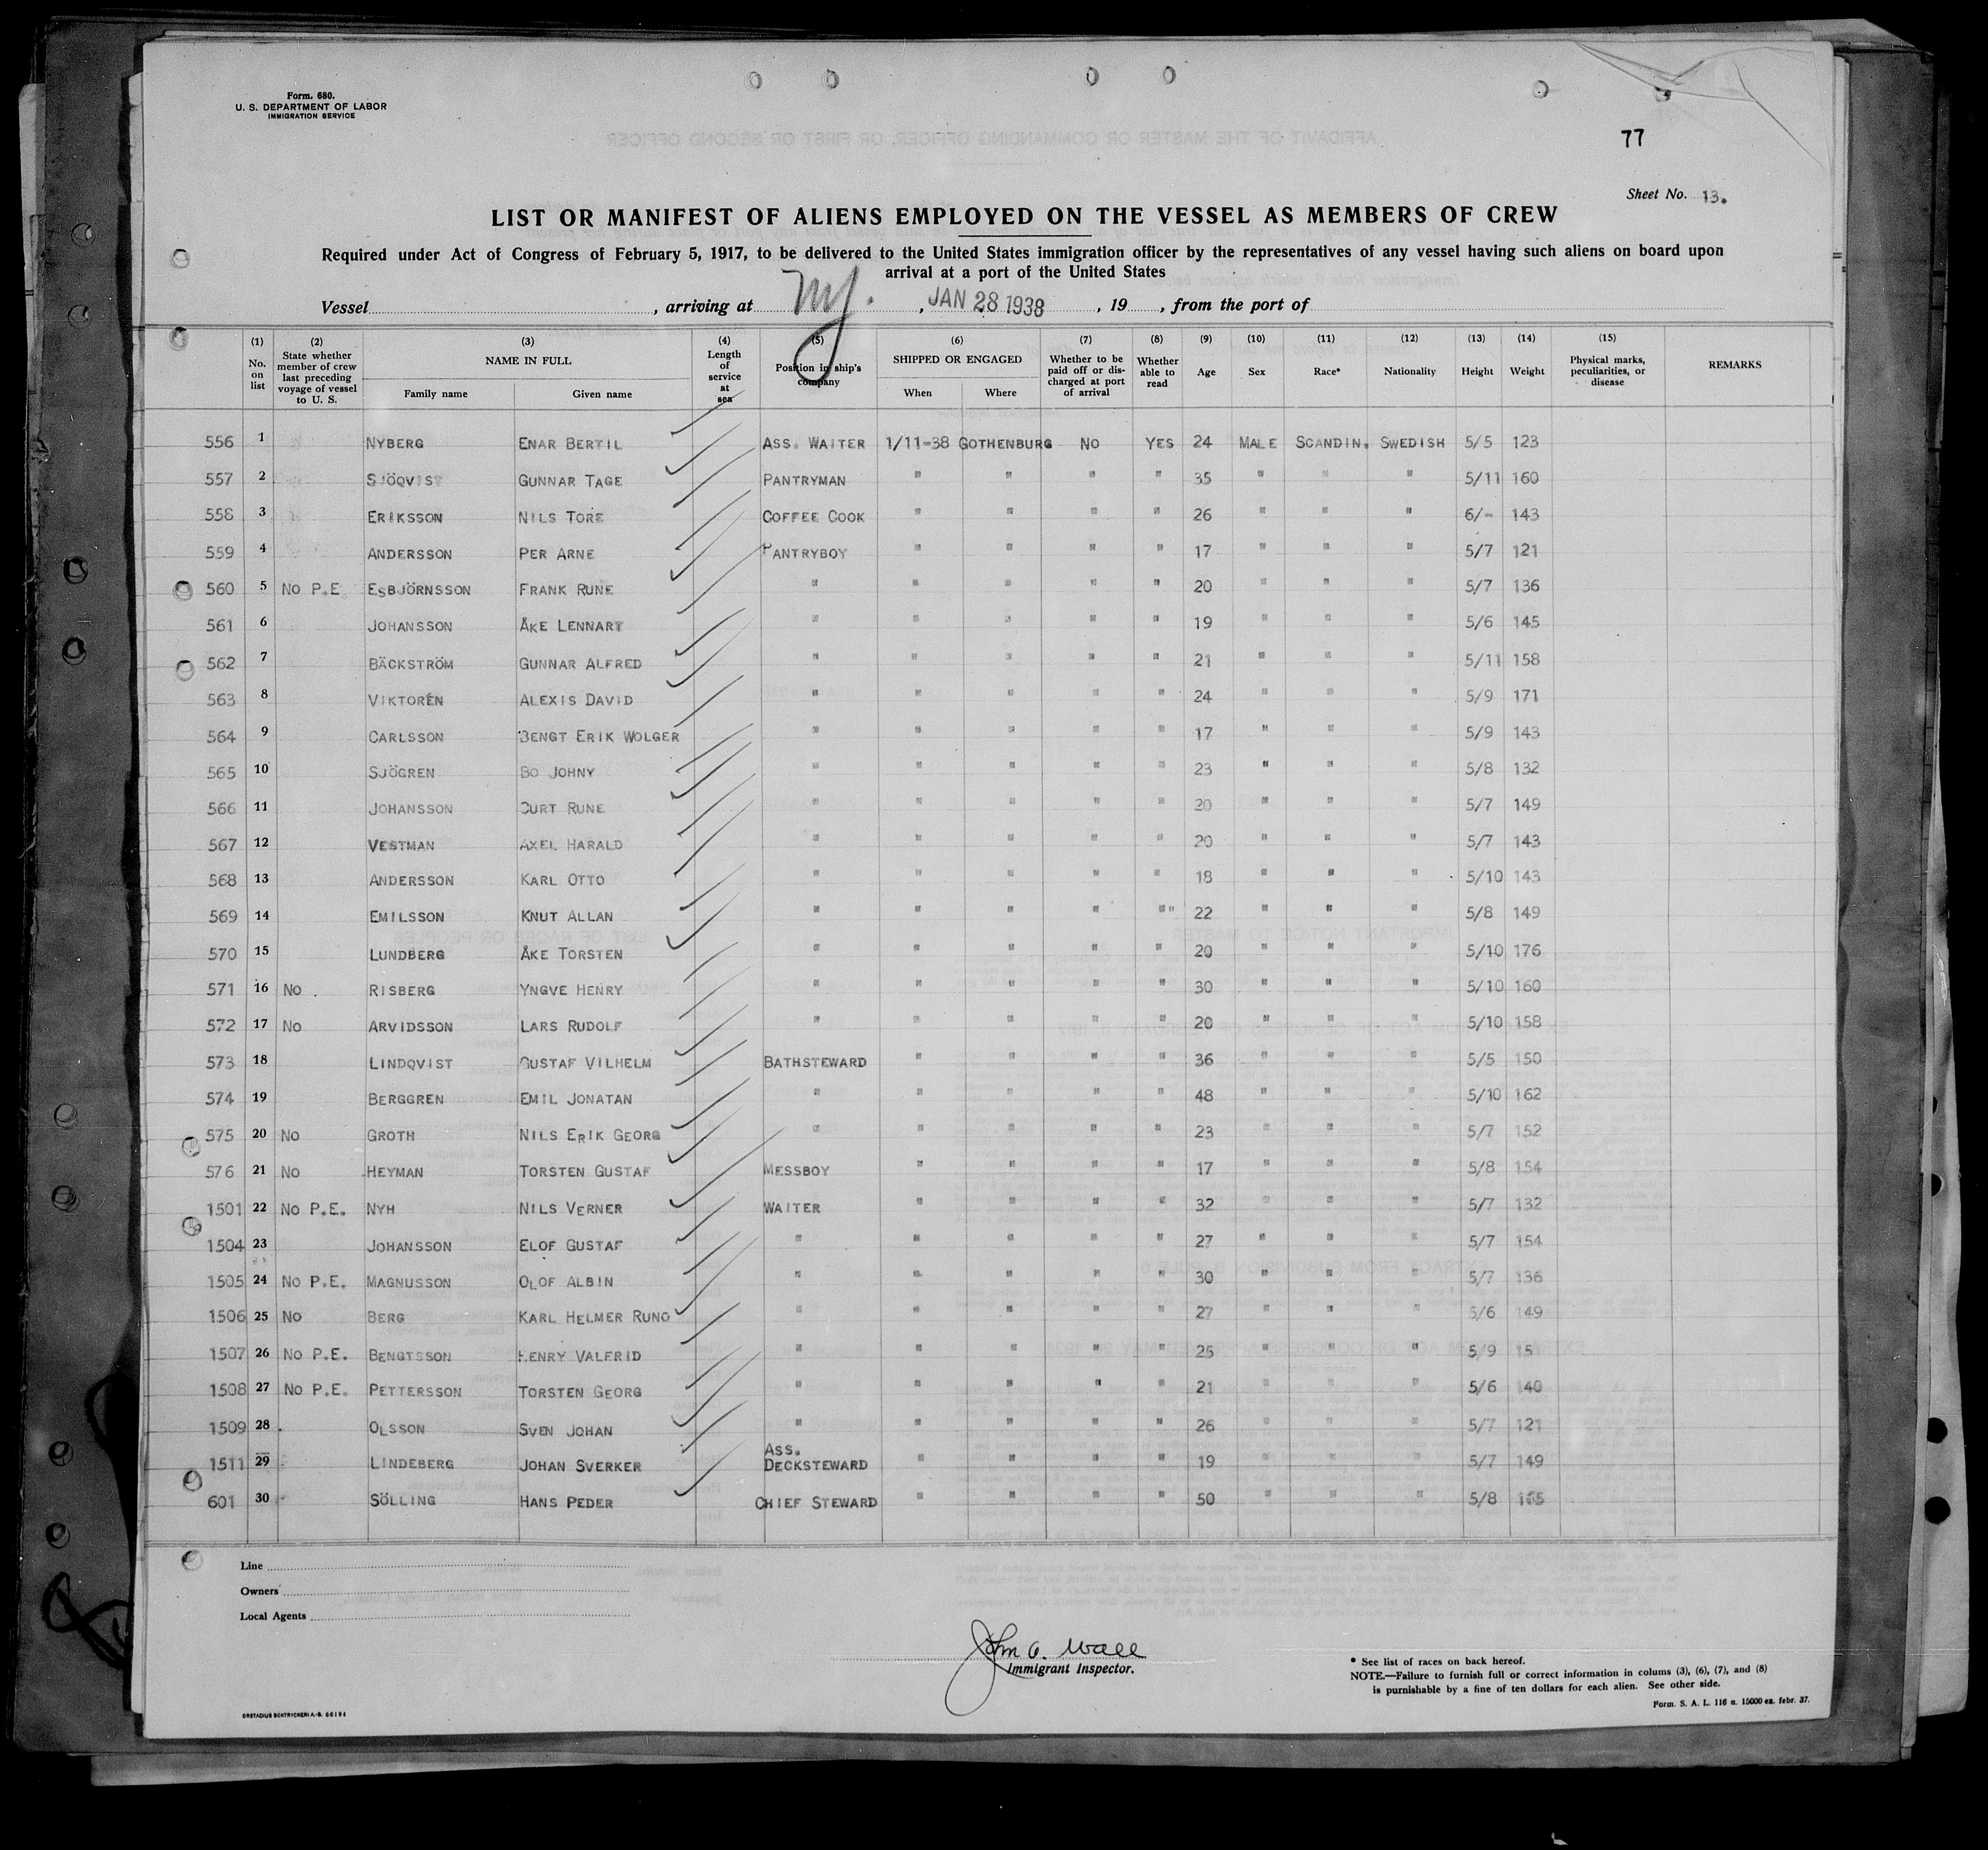 Form. 680.
U. S. DEPARTMENT OF LABOR
IMMIGRATION SERVICE
77
Sheet No. 13.
LIST OR MANIFEST OF ALIENS EMPLOYED ON THE VESSEL AS MEMBERS OF CREW
Required under Act of Congress of February 5, 1917, to be delivered to the United States immigration officer by the representatives of any vessel having such aliens on board upon
arrival at a port of the United States
Vessel , arriving at NY. , JAN 28 1938 , 19 , from the port of
(1) No. on list (2) State whether member of crew last preceding voyage of vessel to U. S. (3) NAME IN FULL Family name Given name (4) Length of service at sea (5) Position in ship's company (6) SHIPPED OR ENGAGED When Where (7) Whether to be paid off or discharged at port of arrival (8) Whether able to read (9) Age (10) Sex (11) Race* (12) Nationality (13) Height (14) Weight (15) Physical marks, peculiarities, or disease REMARKS
556 1 NYBERG ENAR BERTIL ASS. WAITER 1/11-38 GOTHENBURG NO YES 24 MALE SCANDIN. SWEDISH 5/5 123
557 2 SJÖQVIST GUNNAR TAGE PANTRYMAN " " " " 35 " " " 5/11 160
558 3 ERIKSSON NILS TORE COFFEE COOK " " " " 26 " " " 6/- 143
559 4 ANDERSSON PER ARNE PANTRYBOY " " " " 17 " " " 5/7 121
560 5 NO P.E. ESBJÖRNSSON FRANK RUNE " " " " " 20 " " " 5/7 136
561 6 JOHANSSON ÅKE LENNART " " " " " 19 " " " 5/6 145
562 7 BÄCKSTRÖM GUNNAR ALFRED " " " " " 21 " " " 5/11 158
563 8 VIKTORÉN ALEXIS DAVID " " " " " 24 " " " 5/9 171
564 9 CARLSSON BENGT ERIK WOLGER " " " " " 17 " " " 5/9 143
565 10 SJÖGREN BO JOHNY " " " " " 23 " " " 5/8 132
566 11 JOHANSSON CURT RUNE " " " " " 20 " " " 5/7 149
567 12 VESTMAN AXEL HARALD " " " " " 20 " " " 5/7 143
568 13 ANDERSSON KARL OTTO " " " " " 18 " " " 5/10 143
569 14 EMILSSON KNUT ALLAN " " " " " 22 " " " 5/8 149
570 15 LUNDBERG ÅKE TORSTEN " " " " " 20 " " " 5/10 176
571 16 NO RISBERG YNGVE HENRY " " " " " 30 " " " 5/10 160
572 17 NO ARVIDSSON LARS RUDOLF " " " " " 20 " " " 5/10 158
573 18 LINDQVIST GUSTAF VILHELM BATHSTEWARD " " " " 36 " " " 5/5 150
574 19 BERGGREN EMIL JONATAN " " " " " 48 " " " 5/10 162
575 20 NO GROTH NILS ERIK GEORG " " " " " 23 " " " 5/7 152
576 21 NO HEYMAN TORSTEN GUSTAF MESSBOY " " " " 17 " " " 5/8 154
1501 22 NO P.E. NYH NILS VERNER WAITER " " " " 32 " " " 5/7 132
1504 23 JOHANSSON ELOF GUSTAF " " " " " 27 " " " 5/7 154
1505 24 NO P.E. MAGNUSSON OLOF ALBIN " " " " " 30 " " " 5/7 136
1506 25 NO BERG KARL HELMER RUNO " " " " " 27 " " " 5/6 149
1507 26 NO P.E. BENGTSSON HENRY VALFRID " " " " " 25 " " " 5/9
1508 27 NO P.E. PETTERSSON TORSTEN GEORG " " " " " 21 " " " 5/6 140
1509 28 OLSSON SVEN JOHAN " " " " " 26 " " " 5/7 121
1511 29 LINDEBERG JOHAN SVERKER ASS. DECKSTEWARD " " " " 19 " " " 5/7 149
601 30 SÖLLING HANS PEDER CHIEF STEWARD " " " " 50 " " " 5/8 165
Line
Owners
Local Agents
John O. Wall
Immigrant Inspector.
* See list of races on back hereof.
NOTE.—Failure to furnish full or correct information in colums (3), (6), (7), and (8)
is purnishable by a fine of ten dollars for each alien. See other side.
Form. S. A. L. 116 n. 15000 ex. febr. 37.